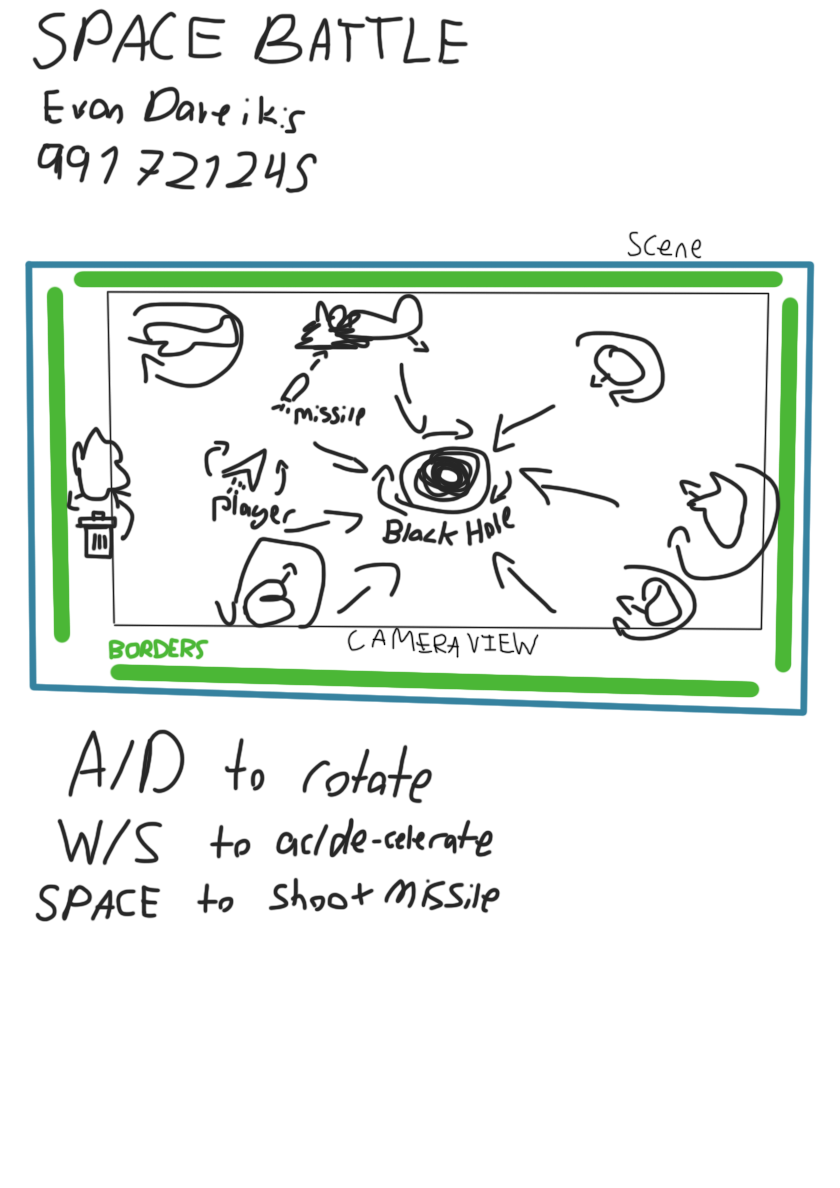 SPACE BATTLE
Evan Dareikis
991721245
Scene
missile
Player
Black Hole
CAMERA VIEW
BORDERS
A/D to rotate
W/S to ac/de-celerate
SPACE to shoot missile